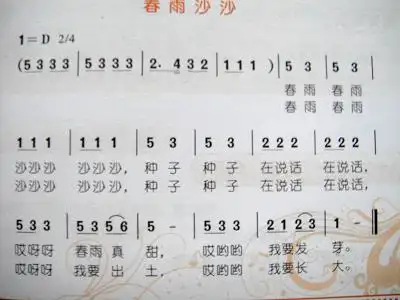 春雨沙沙
1=D 2/4
(5 3 3 3 | 5 3 3 3 | 2. 4 3 2 | 1 1 1 | ) | 5 3 5 3 |
春雨 春雨
春雨 春雨
1 1 1 1 1 1 | 5 3 5 3 | 2 2 2 2 2 2 |
沙沙沙 沙沙沙, 种子 种子 在说话 在说话,
沙沙沙 沙沙沙, 种子 种子 在说话 在说话,
5 3 3 5 3 5 6 | 5 - | 5 3 3 | 2 1 2 3 | 1 - ‖
哎呀呀 春雨真 甜, 哎哟哟 我要发 芽。
哎呀呀 我要出 土, 哎哟哟 我要长 大。